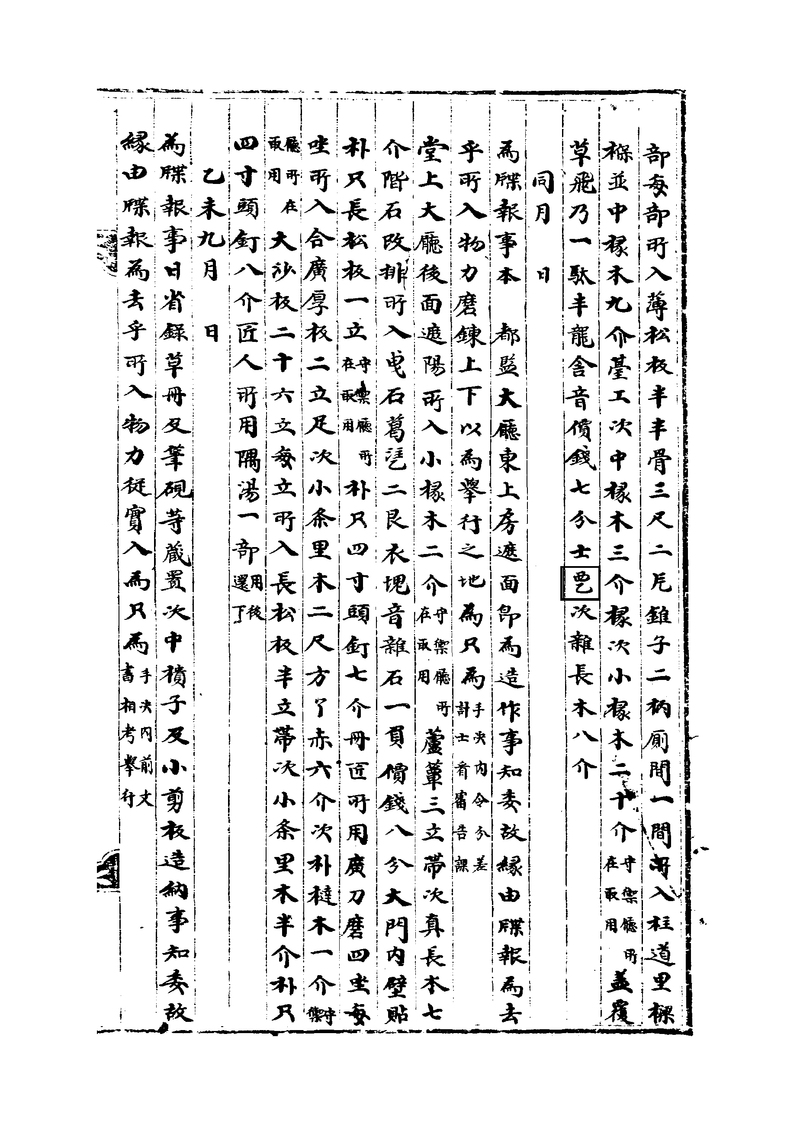 部每部所入薄松板半半骨三尺二尾錐子二柄厠間一間所入柱道里樑
樑並中椽木九介臺工次中椽木三介椽次小椽木二十介守禦廳所在取用盖覆
草飛乃一駄半龍舍音價錢七分士㔾次雜長木八介
同月 日
為牒報事本 都監大廳東上房遮面卽為造作事知委故緣由牒報為去
乎所入物力磨鍊上下以為擧行之地為只為手決內令分差計士看審告課
堂上大廳後面遮陽所入小椽木二介守禦廳所在取用蘆簟三立帶次真長木七
介階石改排所入曳石葛乼二艮衣塊音雜石一負價錢八分大門內壁貼
朴只長松板一立守禦廳所在取用朴只四寸頭釘七介冊匠所用廣刀磨四坐每
坐所入合廣厚板二立足次小条里木二尺方了赤六介次朴撻木一介守禦
廳所在取用大沙板二十六立每立所入長松板半立帶次小条里木半介朴只
四寸頭釘八介匠人所用隅湯一部用後還了
乙未九月 日
為牒報事日省錄草冊及筆硯等藏置次中樻子及小剪板造納事知委故
緣由牒報為去乎所入物力從實入為只為手決內前文書相考擧行